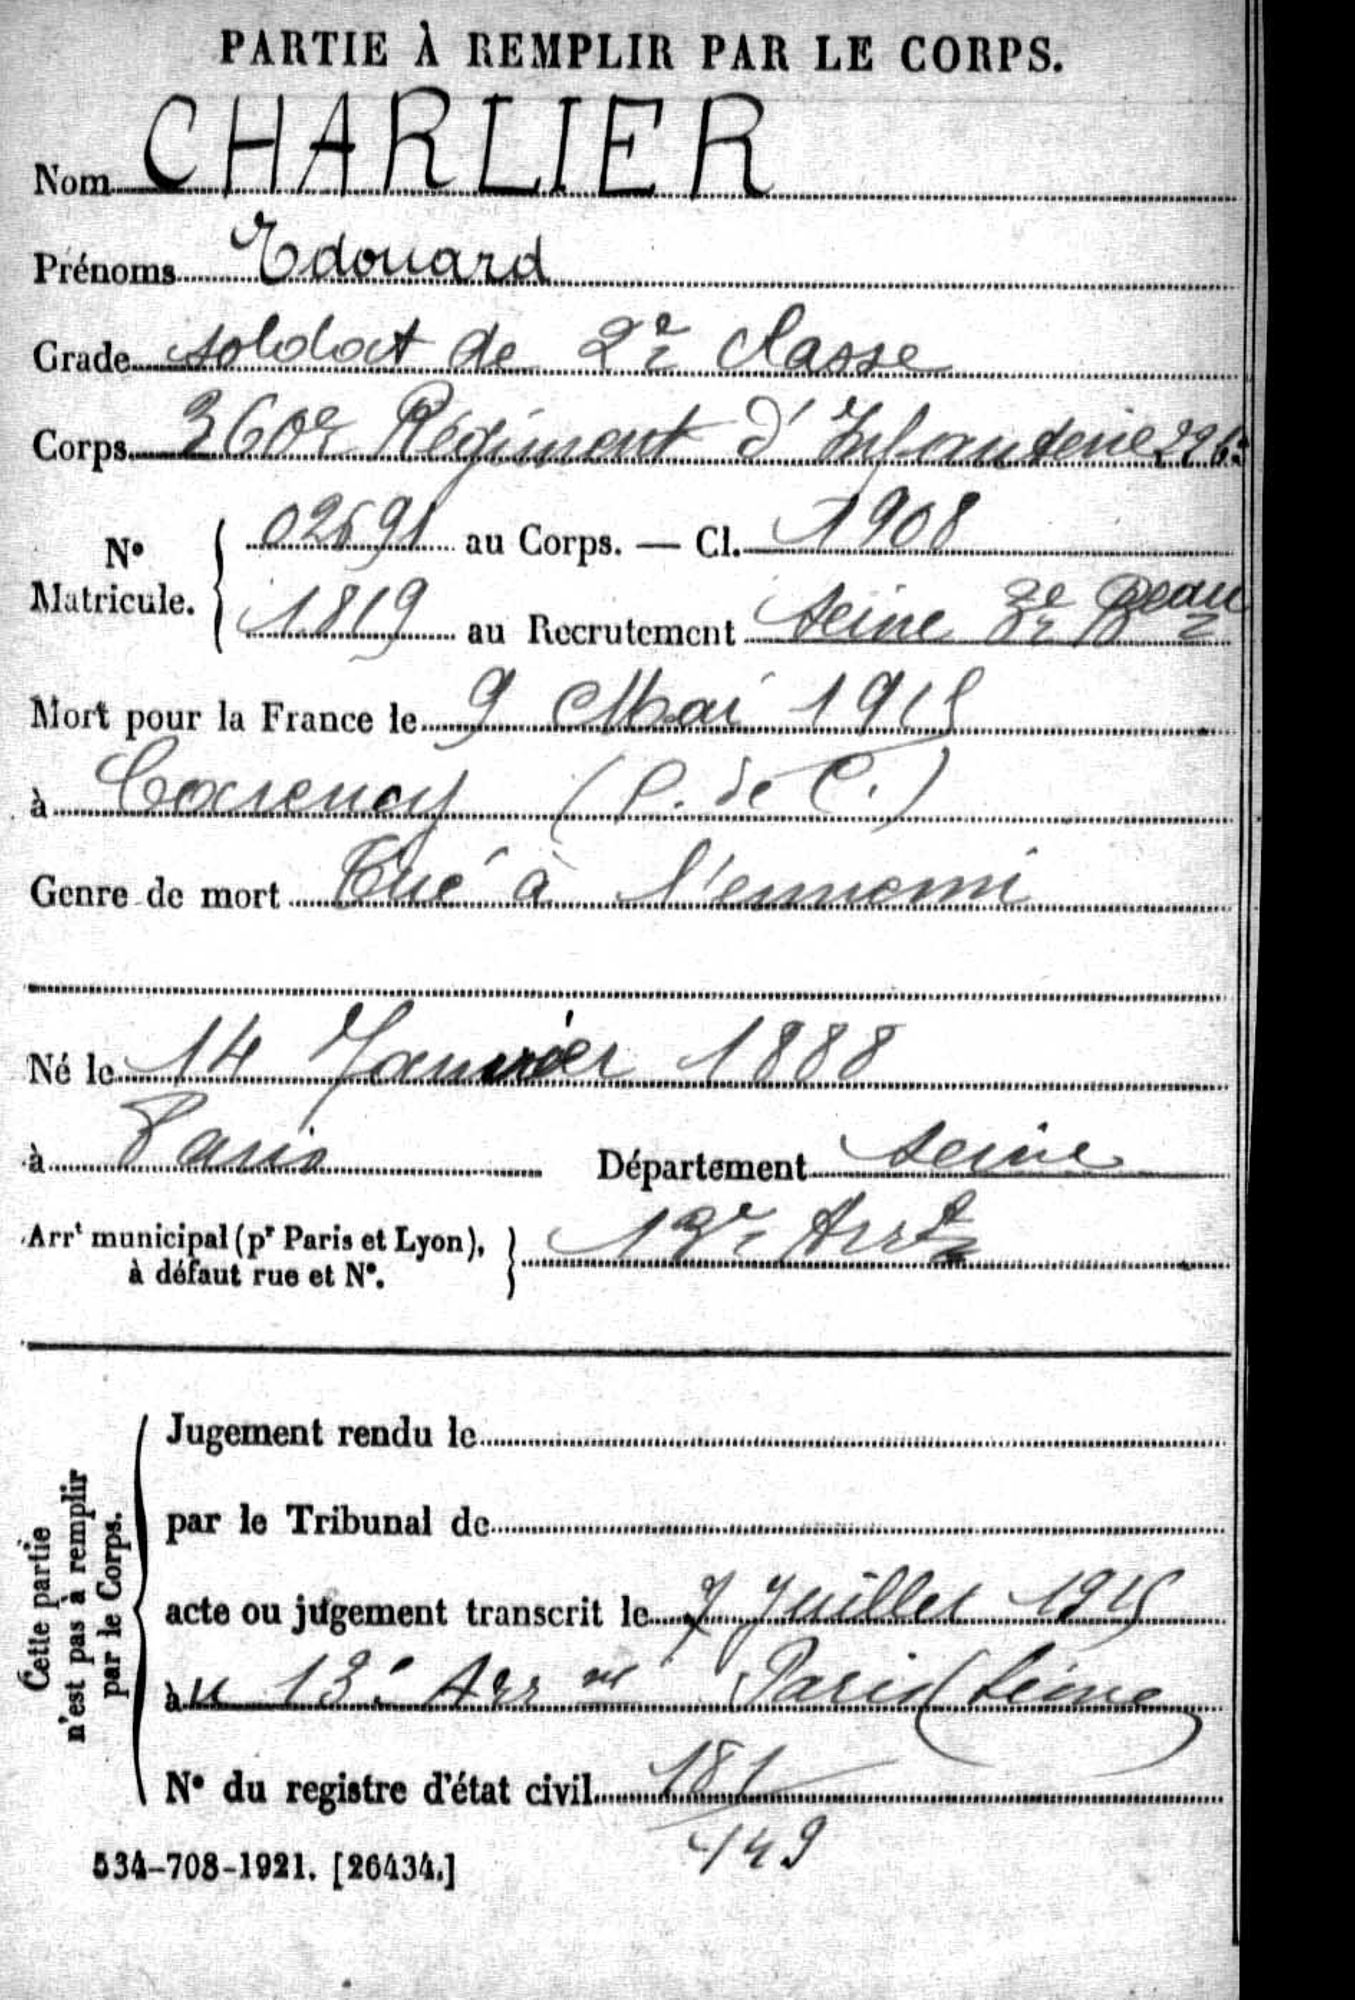 PARTIE À REMPLIR PAR LE CORPS.
Nom CHARLIER
Prénoms Edouard
Grade soldat de 2e classe
Corps 360e Régiment d'Infanterie
N° Matricule. { au Corps. — Cl. 1908
1819 au Recrutement Seine 3e Beau
Mort pour la France le 9 Mai 1915
à Carency (P. de C.)
Genre de mort Tué à l'ennemi
Né le 14 Janvier 1888
à Paris Département Seine
Arrt municipal (pr Paris et Lyon), à défaut rue et N°. } 13e Arrt
Cette partie n'est pas à remplir par le Corps.
Jugement rendu le
par le Tribunal de
acte ou jugement transcrit le 7 Juillet 1915
au 13e Arr nt Paris (Seine)
N° du registre d'état civil 181
149
534-708-1921. [26434.]